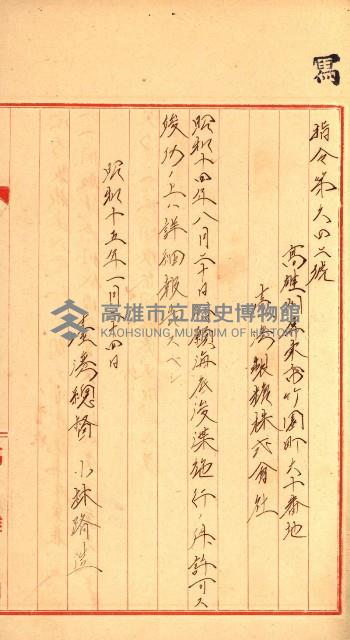 寫
指令第六四六號
高雄州屏東市竹園町六十番地
臺灣製糖株式會社
昭和十四年八月二十日願海底浚渫施行ノ件許可ス
竣功ノ上ハ詳細報告スベシ
昭和十五年一月十四日
臺灣總督 小林躋造
高雄市立歷史博物館
KAOHSIUNG MUSEUM OF HISTORY